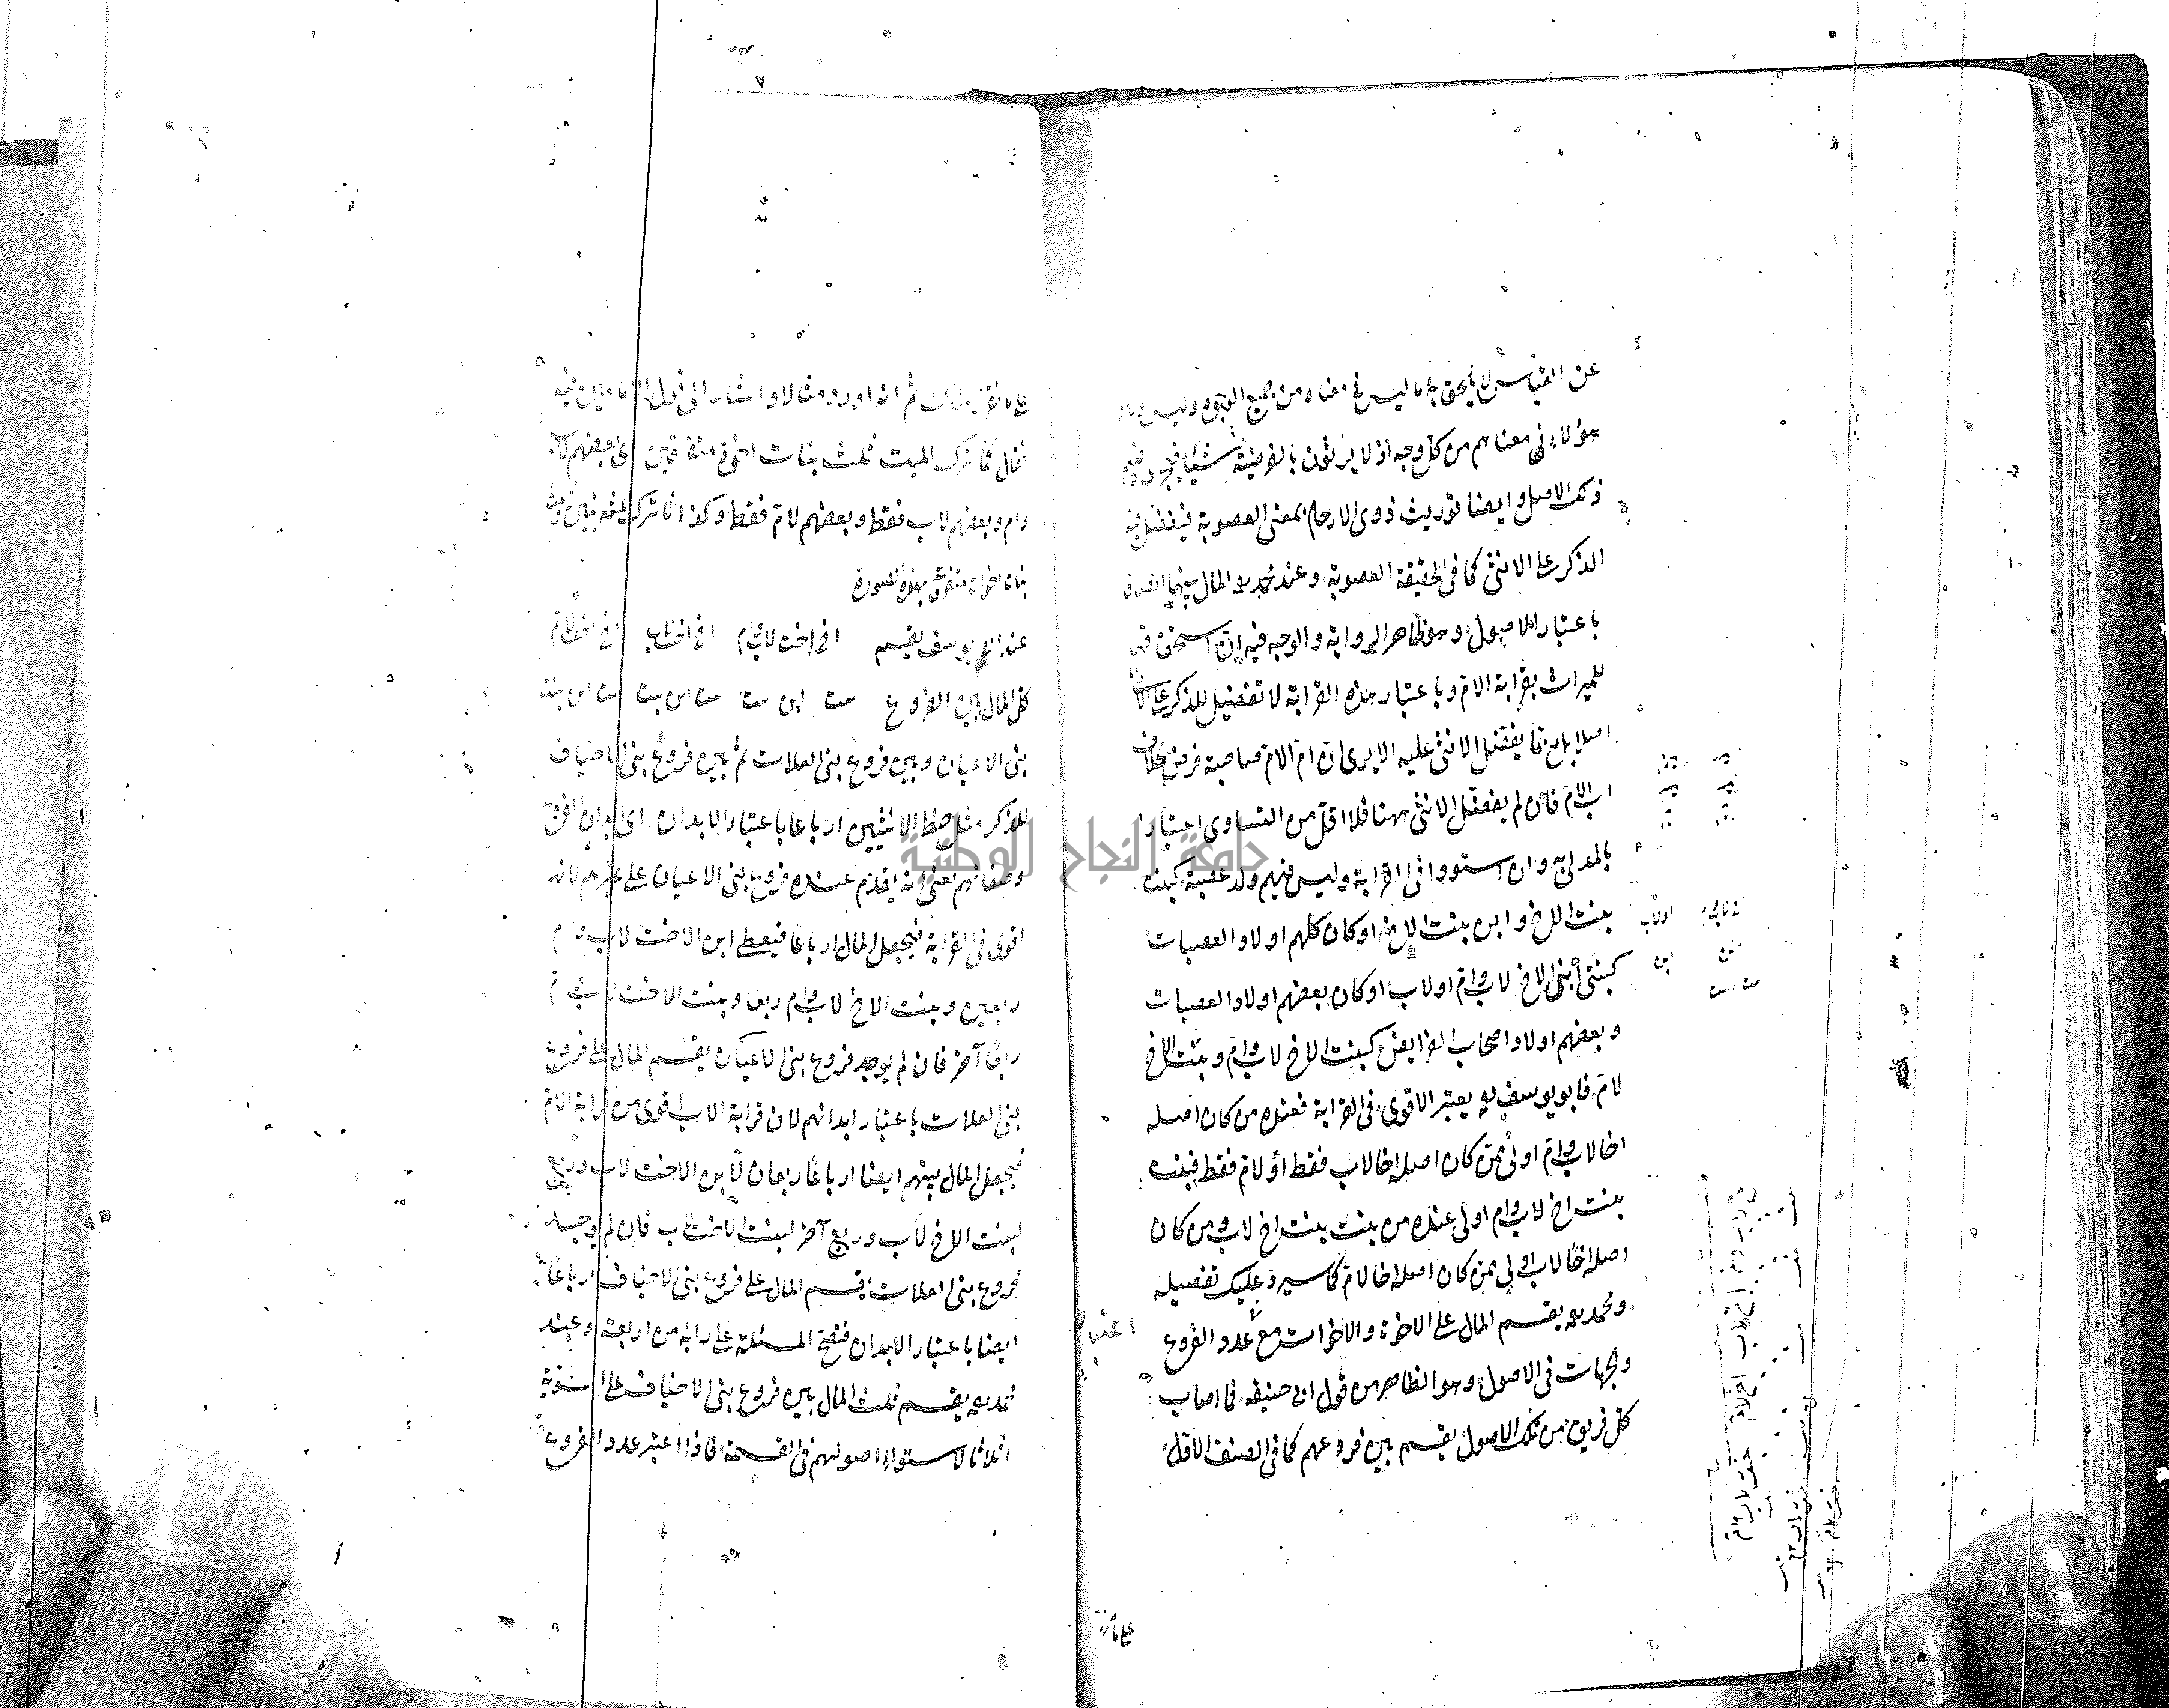 عن القياس لا يلحق به ما ليس في معناه من جميع الوجوه وليس اولاد
هؤلاء في معناهم من كل وجه اذ لا يرثون بالفرضية شيئا فيجري فيهم
ذلك الاصل وايضا توريث ذوى الارحام بمعنى العصوبة فيفضل فيه
الذكر على الانثى كما في الحقيقة العصوبة وعند محمد رحمه المال بينهما انصافا
باعتبار الاصول وهو ظاهر الرواية والوجه فيه ان استحقاقهما
للميراث بقرابة الام وباعتبار هذه القرابة لا تفضيل للذكر على الانثى
اصلا بل ربما يفضل الانثى عليه الا يرى ان ام الام صاحبة فرض بخلاف
اب الام فان لم يفضل الانثى ههنا فلا اقل من التساوى اعتبارا
بالمدلى به وان استووا في القرابة وليس فيهم ولد عصبة كبنت
بنت الاخ وابن بنت الاخ او كان كلهم اولاد العصبات
كبنتي ابني الاخ لاب وام او لاب او كان بعضهم اولاد العصبات
وبعضهم اولاد اصحاب الفرايض كبنت الاخ لاب وام وبنت الاخ
لام فابو يوسف رحمه يعتبر الاقوى في القرابة فعنده من كان اصله
اخا لاب وام اولى ممن كان اصله اخا لاب فقط أو لام فقط فعنده
بنت اخ لاب وام اولى عنده من بنت بنت اخ لاب ومن كان
اصله اخا لاب اولى ممن كان اصله اخا لام كما سيرد عليك تفصيله
ومحمد رحمه يقسم المال على الاخوة والاخوات مع عدد الفروع
والجهات في الاصول وهو الظاهر من قول ابى حنيفة فما اصاب
كل فريق من تلك الاصول يقسم بين فروعهم كما في الصنف الاول
على ما
ثم انه اورد مثالا واشار الى قول الامامين فيه
فقال كما ترك الميت ثلث بنات اخوة متفرقين اى بعضهم لاب
وام وبعضهم لاب فقط وبعضهم لام فقط وكذا ترك ثلثة بنين وثلث
بنات اخوات متفرقة بهذه الصورة
عند ابى يوسف يقسم اخ اخت لاب وام اخ اخت لاب اخ اخت لام
كل المال بين الفروع بنت ابن بنت بنت ابن بنت بنت ابن بنت
بنى الاعيان وبين فروع بنى العلات ثم بين فروع بنى الاخياف
للذكر مثل حظ الانثيين ارباعا باعتبار الابدان اى ابدان الفروع
وصفاتهم يعنى انه يقدم عنده فروع بنى الاعيان على غيرهم لانه
اقوى في القرابة فيجعل المال ارباعا فيعطى ابن الاخت لاب وام
ربعين وبنت الاخ لاب وام ربعا وبنت الاخت لاب وام
ربعا آخر فان لم يوجد فروع بنى الاعيان يقسم المال على فروع
بنى العلات باعتبار ابدانهم لان قرابة الاب اقوى من قرابة الام
فيجعل المال بينهم ايضا ارباعا ربعان لابن الاخت لاب وربع
لبنت الاخ لاب وربع آخر لبنت الاخت لاب فان لم يوجد
فروع بنى العلات يقسم المال على فروع بنى الاخياف ارباعا
ايضا باعتبار الابدان فتصح المسئلة على رايه من اربعة وعند
محمد رحمه يقسم ثلث المال بين فروع بنى الاخياف على السوية
اثلاثا لاستواء اصولهم في القسمة فاذا اعتبر عدد الفروع
جامعة النجاح الوطنية